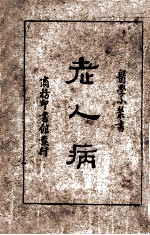 醫學小叢書
老人病
商務印書館發行